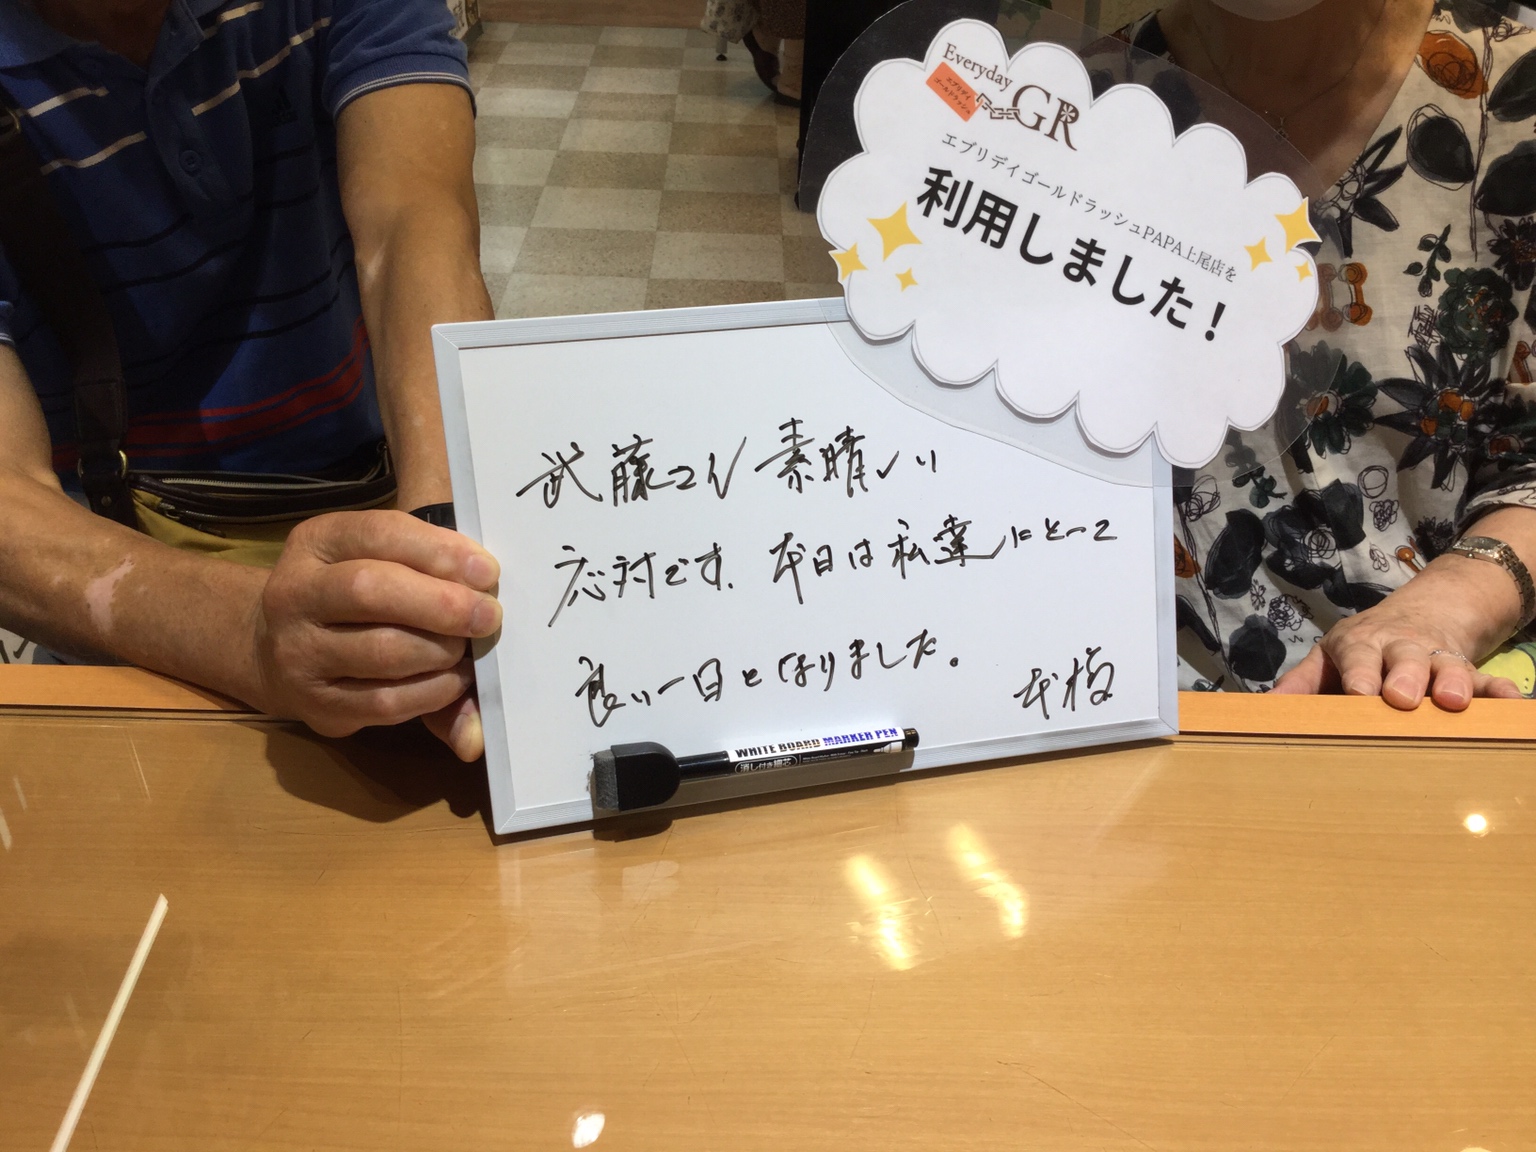 Everyday
エブリデイ
ゴールドラッシュ
GR
エブリデイゴールドラッシュPAPA上尾店を
利用しました！
武藤さん 素晴しい
応対です。本日は私達にとって
良い一日となりました。
WHITE BOARD MARKER PEN
消し付き細芯